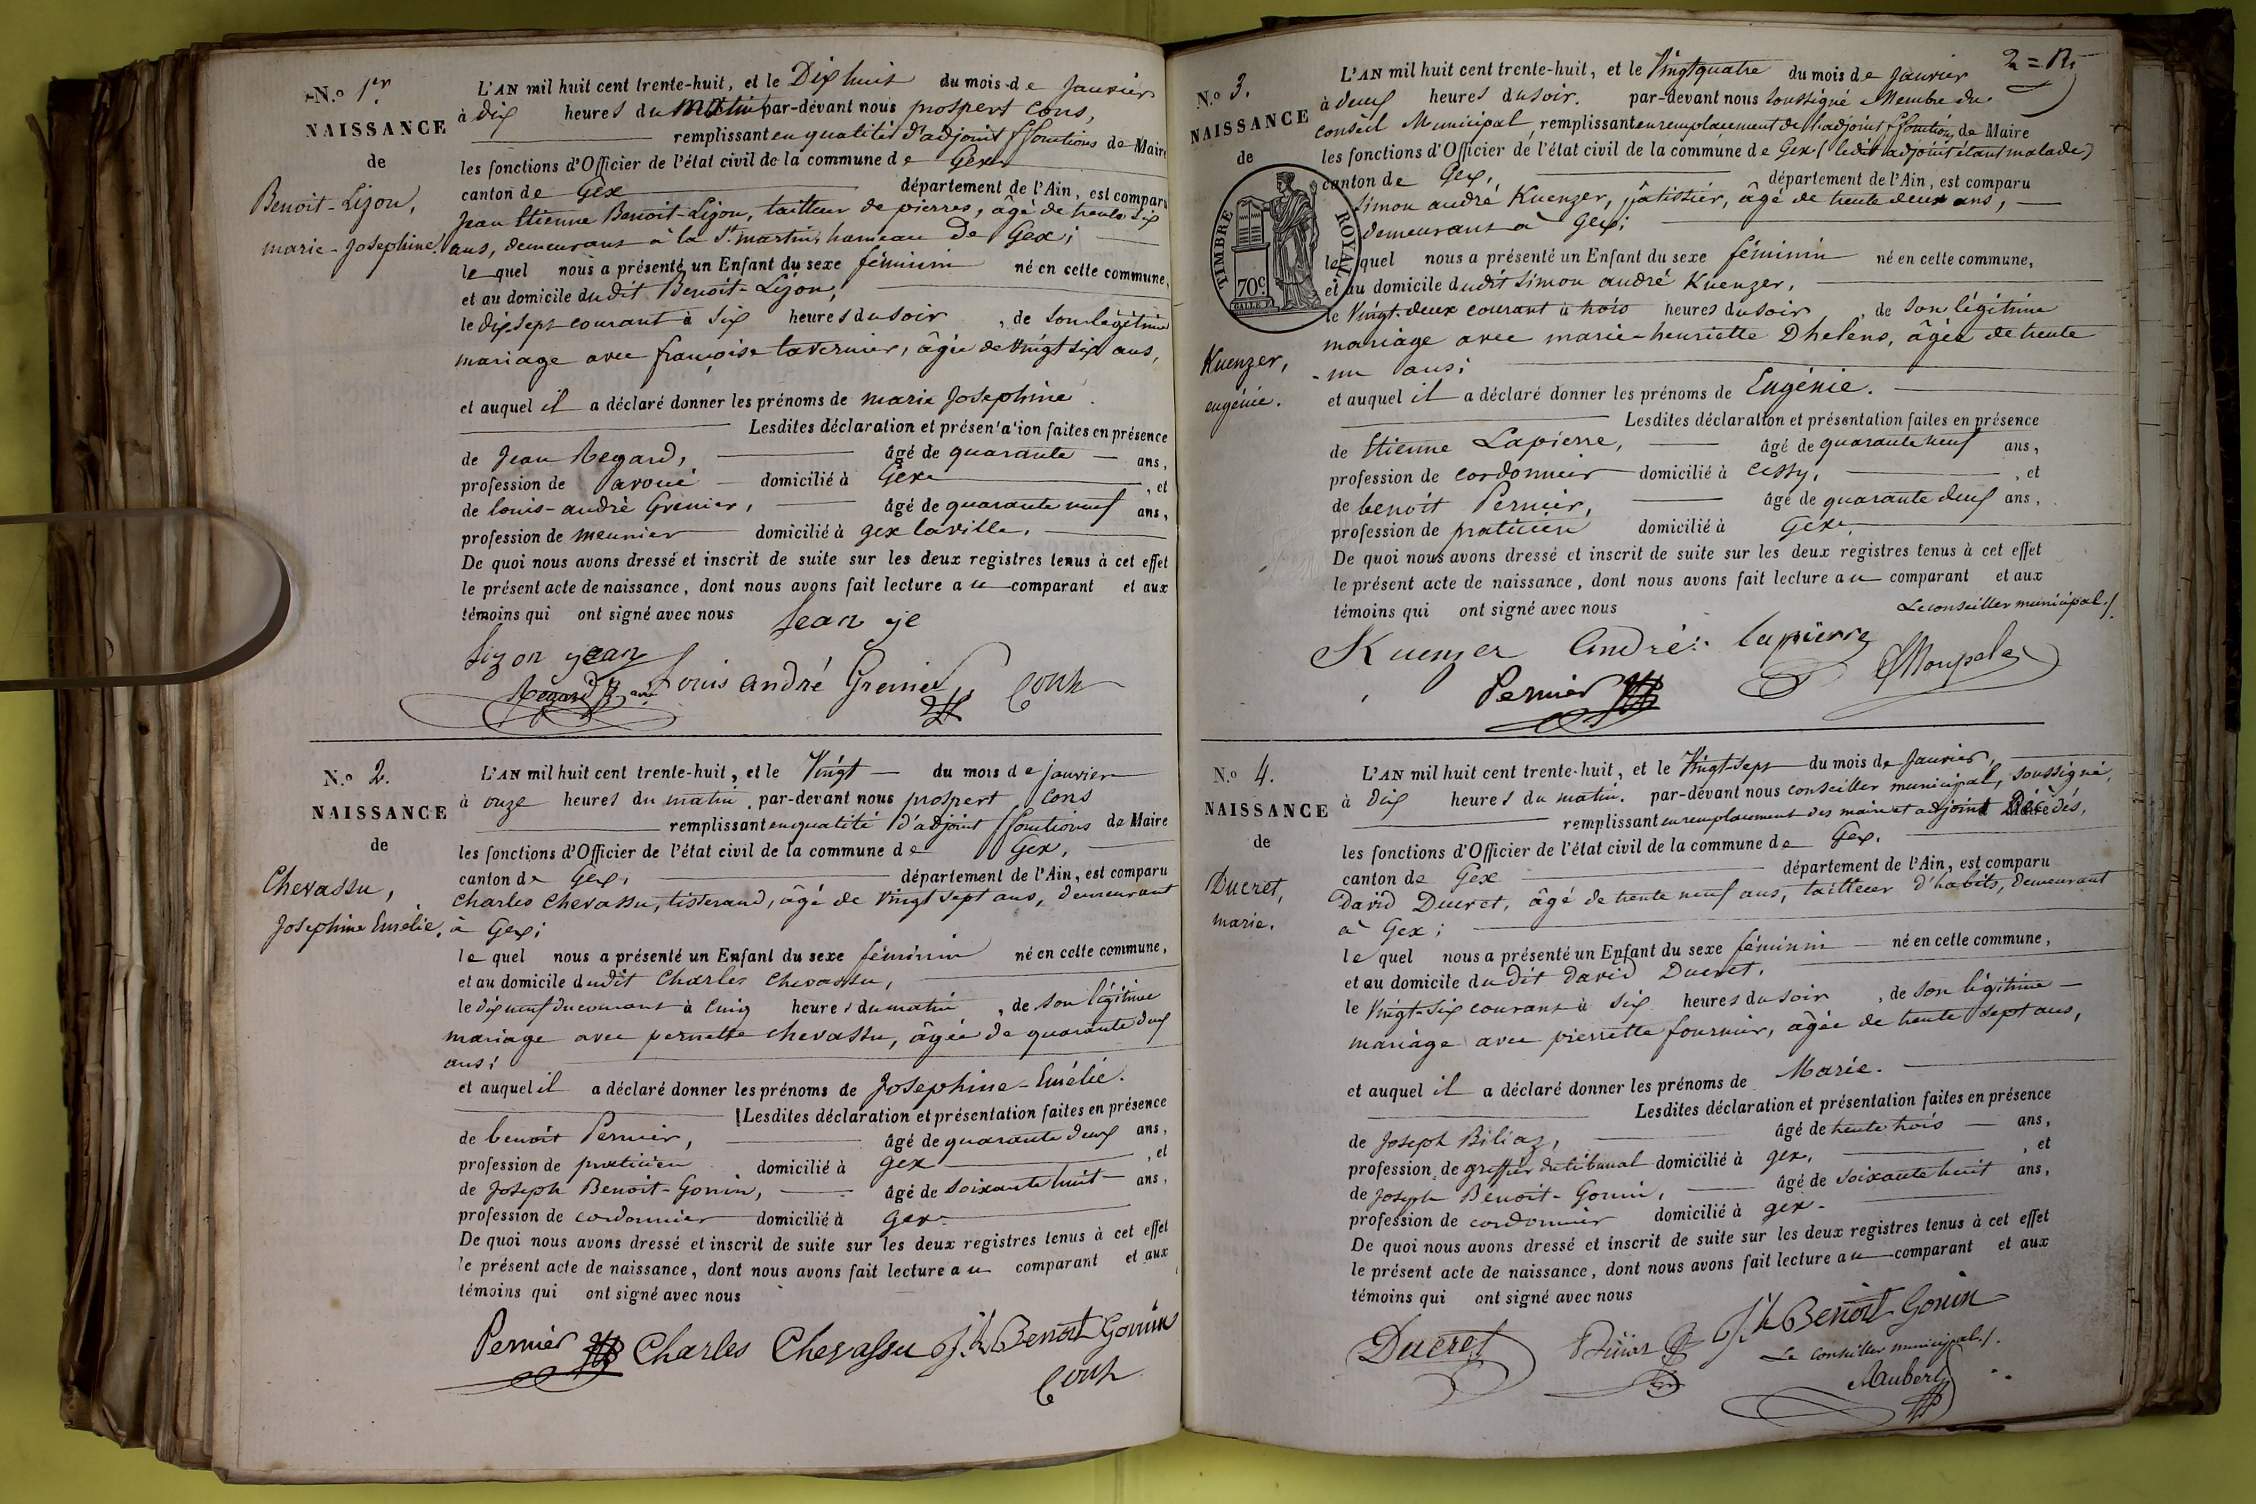 N.o 1er.
NAISSANCE
de
Benoit-Lizon,
marie-Josephine.
L'AN mil huit cent trente-huit, et le Dix huit du mois de Janvier
à dix heures du matin par-devant nous prospert Cons,
remplissant en qualité d'adjoint ffonctions de Maire
les fonctions d'Officier de l'état civil de la commune de Gex
canton de Gex département de l'Ain, est comparu
Jean Etienne Benoit-Lizon, tailleur de pierres, âgé de trente six
ans, demeurant à la St. martin, hameau De Gex;
le quel nous a présenté un Enfant du sexe féminin né en cette commune,
et au domicile dudit Benoit-Lizon,
le dix sept courant à six heures du soir, de son légitime
mariage avec françoise tavernier, âgée de vingt six ans,
et auquel il a déclaré donner les prénoms de marie Josephine.
Lesdites déclaration et présen'a'ion faites en présence
de Jean Regard, âgé de quarante ans,
profession de avoué domicilié à Gex, et
de louis-andré Grenier, âgé de quarante neuf ans,
profession de meunier domicilié à gex la ville.
De quoi nous avons dressé et inscrit de suite sur les deux registres tenus à cet effet
le présent acte de naissance, dont nous avons fait lecture au comparant et aux
témoins qui ont signé avec nous Jean je
Lizon jean
Regard Louis andré Grenier Cons
N.o 2.
NAISSANCE
de
Chevassu,
Josephine Emélie.
L'AN mil huit cent trente-huit, et le Vingt du mois de janvier
à onze heures du matin, par-devant nous prospert Cons
remplissant en qualité d'adjoint ffonctions de Maire
les fonctions d'Officier de l'état civil de la commune de Gex,
canton de Gex, département de l'Ain, est comparu
Charles Chevassu, tisserand, âgé de vingt sept ans, demeurant
à Gex;
le quel nous a présenté un Enfant du sexe féminin né en cette commune,
et au domicile dudit Charles Chevassu,
le dix neuf du courant à cinq heures du matin, de son légitime
mariage avec pernette Chevassu, âgée de quarante deux
ans;
et auquel il a déclaré donner les prénoms de Josephine-Emélie.
Lesdites déclaration et présentation faites en présence
de benoit Pernier, âgé de quarante deux ans,
profession de praticien domicilié à gex, et
de Joseph Benoit-Gonin, âgé de soixante huit ans,
profession de cordonnier domicilié à Gex.
De quoi nous avons dressé et inscrit de suite sur les deux registres tenus à cet effet
le présent acte de naissance, dont nous avons fait lecture au comparant et aux
témoins qui ont signé avec nous
Pernier Charles Chevassu Jh Benoit Gonin
Cons
2=
N.o 3.
NAISSANCE
de
TIMBRE ROYAL
70c
Kuenzer,
eugénie.
L'AN mil huit cent trente-huit, et le Vingt quatre du mois de janvier
à deux heures du soir. par-devant nous soussigné Membre du
conseil Municipal, remplissant en remplacement de l'adjoint ffonctions de Maire
les fonctions d'Officier de l'état civil de la commune de Gex (ledit adjoint étant malade)
canton de Gex, département de l'Ain, est comparu
Simon andré Kuenzer, pâtissier, âgé de trente deux ans,
demeurant à Gex;
le quel nous a présenté un Enfant du sexe féminin né en cette commune,
et au domicile dudit Simon andré Kuenzer,
le Vingt-deux courant à trois heures du soir, de son légitime
mariage avec marie-henriette Dhelens, âgée de trente
-un ans;
et auquel il a déclaré donner les prénoms de Eugénie.
Lesdites déclaration et présentation faites en présence
de Etienne Lapierre, âgé de quarante neuf ans,
profession de cordonnier domicilié à cessy, et
de benoit Pernier, âgé de quarante deux ans,
profession de praticien domicilié à Gex.
De quoi nous avons dressé et inscrit de suite sur les deux registres tenus à cet effet
le présent acte de naissance, dont nous avons fait lecture au comparant et aux
témoins qui ont signé avec nous Le conseiller municipal./.
Kuenzer André lapierre
Pernier
N.o 4.
NAISSANCE
de
Ducret,
marie.
L'AN mil huit cent trente-huit, et le Vingt-sept du mois de Janvier,
à dix heures du matin. par-devant nous conseiller municipal, soussigné,
remplissant en remplacement des maire et adjoint Décédés,
les fonctions d'Officier de l'état civil de la commune de Gex.
canton de Gex département de l'Ain, est comparu
David Ducret, âgé de trente neuf ans, tailleur d'habits, demeurant
à Gex;
le quel nous a présenté un Enfant du sexe féminin né en cette commune,
et au domicile dudit David Ducret,
le Vingt-six courant à six heures du soir, de son légitime
mariage avec pierrette fournier, âgée de trente sept ans,
et auquel il a déclaré donner les prénoms de Marie.
Lesdites déclaration et présentation faites en présence
de Joseph Biliaz, âgé de trente trois ans,
profession de greffier du tribunal domicilié à gex, et
de Joseph Benoit-Gonin, âgé de soixante huit ans,
profession de cordonnier domicilié à gex.
De quoi nous avons dressé et inscrit de suite sur les deux registres tenus à cet effet
le présent acte de naissance, dont nous avons fait lecture au comparant et aux
témoins qui ont signé avec nous
Ducret Jh Benoit Gonin
Le conseiller municipal./.
Aubert